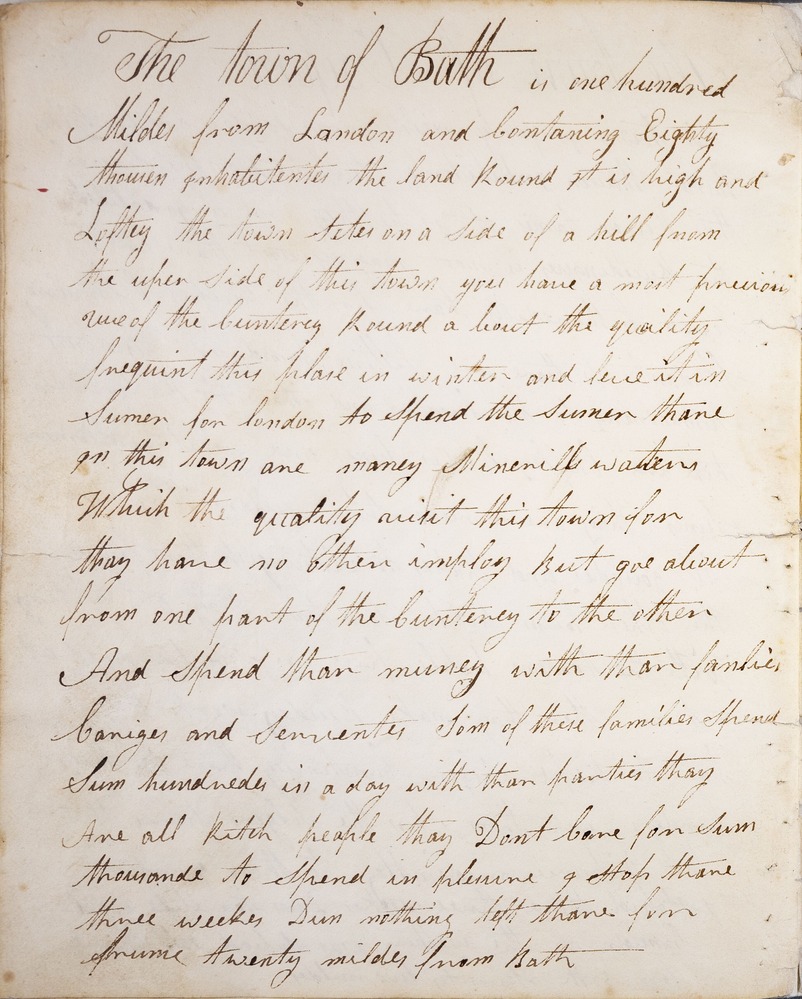 The town of Bath is one hundred
Mildes from Landon and Contaning Eighty
thousen inhabitentes the land Round it is high and
Loftey the town setes on a side of a hill from
the uper side of this town you have a most
vue of the Cunterey Round a bout the quility
frequint this plase in winter and leve it in
Sumer for london to Spend the Sumer thare
in this town are maney Minerills waters
Which the quality visit this town for
thay have no Other imploy But goe about
from one part of the Cunterey to the other
And Spend thar muney with thar famlies
Cariges and Serventes Som of these families Spend
Sum hundredes in a day with thar parties thay
Are all Ritch people thay Dont Care for Sum
thousande to Spend in plesure I Stop thare
three weekes Dun nothing left thare for
frume twenty mildes from Bath